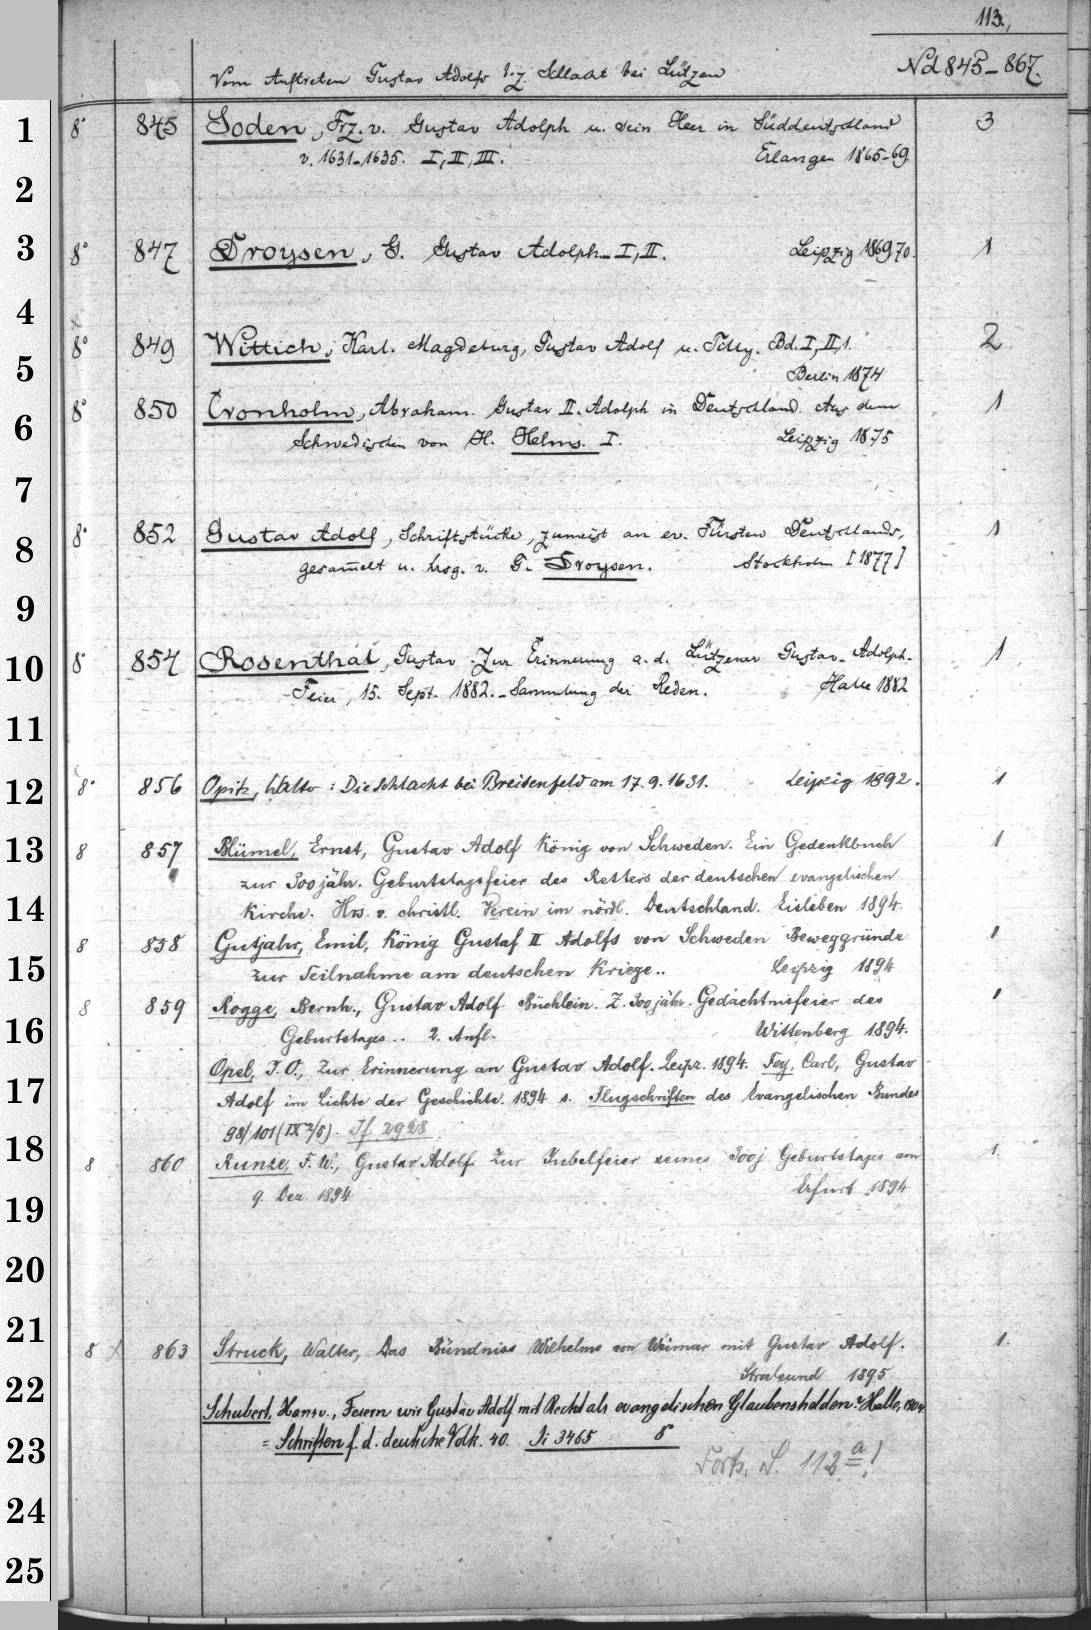 113.
Vom Auftreten Gustav Adolfs b. z. Schlacht bei Lützen Nd 845-867.
1 8° 845 Soden, Frz. v. Gustav Adolph u. sein Heer in Süddeutschland 3
v. 1631-1635. I, II, III. Erlangen 1865-69.
2
3 8° 847 Droysen, G. Gustav Adolph I, II. Leipzig 1869 70. 1
4 x
5 8° 849 Wittich, Karl. Magdeburg, Gustav Adolf u. Tilly. Bd. I, II,1. 2
Berlin 1874
6 8° 850 Cronholm, Abraham. Gustav II. Adolph in Deutschland. Aus dem 1
Schwedischen von H. Helms. I. Leipzig 1875
7
8 8° 852 Gustav Adolf, Schriftstücke, zumeist an ev. Fürsten Deutschlands, 1
gesam̄elt u. hrsg. v. G. Droysen. Stockholm [1877]
9
10 8° 854 Rosenthal, Gustav. Zur Erinnerung a. d. Lützener Gustav-Adolph- 1
Feier, 15. Sept. 1882. - Sammlung der Reden. Halle 1882
11
12 8° 856 Opitz, Walter: Die Schlacht bei Breitenfeld am 17. 9. 1631. Leipzig 1892. 1
13 8 857 Blümel, Ernst, Gustav Adolf König von Schweden. Ein Gedenkbuch 1
zur 300 jähr. Geburtstagsfeier des Retters der deutschen evangelischen
14 Kirche. Hrs. v. christl. Verein im nördl. Deutschland. Eisleben 1894.
8 858 Gutjahr, Emil, König Gustaf II Adolfs von Schweden Beweggründe 1
15 zur Teilnahme am deutschen Kriege.. Leipzig 1894
8 859 Rogge, Bernh., Gustav Adolf Büchlein. Z. 300 jähr. Gedächtnisfeier des 1
16 Geburtstages.. 2. Aufl. Wittenberg 1894.
Opel, J. O., Zur Erinnerung an Gustav Adolf. Leipz. 1894. Fey, Carl, Gustav
17 Adolf im Lichte der Geschichte. 1894 s. Flugschriften des Evangelischen Bundes
98/101 (IX 2/5). If 2928
18 8 860 Runze, F. W., Gustav Adolf. Zur Jubelfeier seines 300j Geburtstages am 1.
19 9. Dez. 1894 Erfurt 1894
20
21 8 x 863 Struck, Walter, Das Bündniss Wilhelms von Weimar mit Gustav Adolf. 1.
22 Stralsund 1895
Schubert, Hans v., Feiern wir Gustav Adolf mit Recht als evangelischen Glaubenshelden? Halle, 1904.
23 = Schriften f. d. deutsche Volk. 40. Ii 3465 8
Forts. S. 112 a!
24
25